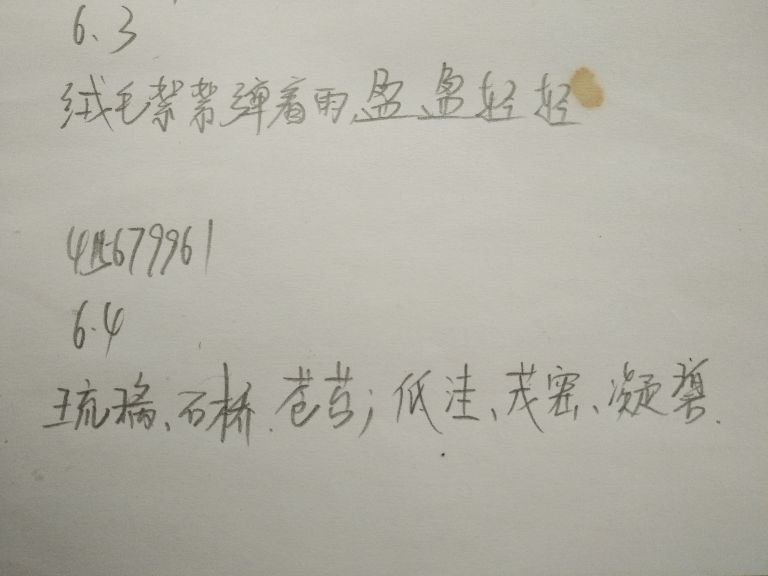 6.3
绒毛萦萦弹着的,盈盈轻轻
679961
6.4
琉璃、石桥、苍苔;低洼、茂密、凝